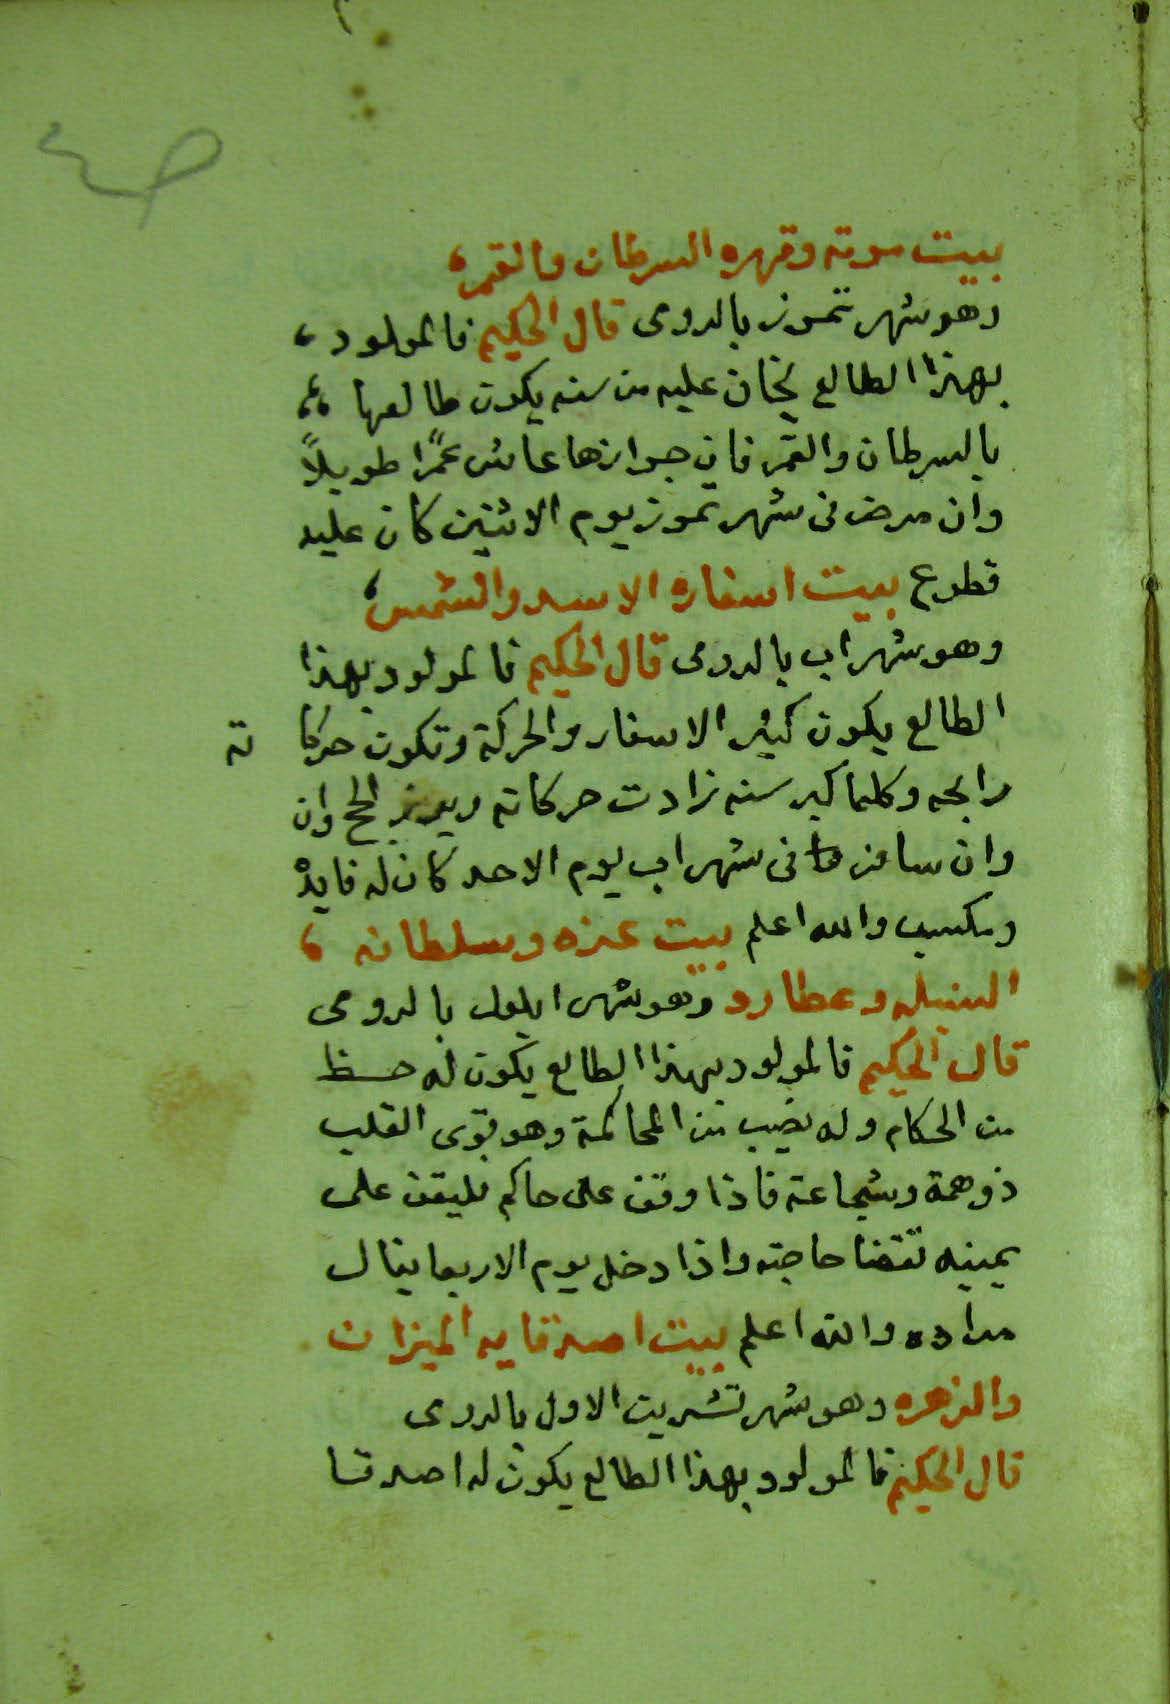 بيت موته وقهره السرطان والقمر،
وهو شهر تموز بالرومى قال الحكيم فالمولود،
بهذا الطالع يخاف عليه من سنه يكون طالعها،،
بالسرطان والقمر فان جوازها عاش عمرًا طويلاً
وان مرض فى شهر تموز يوم الاثنين كان عليه
قطوع بيت اسفاره الاسد والشمس،
وهو شهر اب بالرومى قال الحكيم فالمولود بهذا
الطالع يكون كثير الاسفار والحركة وتكون حركا ته
رابحه وكلما كبر سنه زادت حركاته الحج وان
وان سافر فى شهر اب يوم الاحد كان له فايدة
ومكسب والله اعلم بيت عزه وسلطانه،
السنبله وعطارد وهو شهر ايلول بالرومى
قال الحكيم فالمولود بهذا الطالع يكون له حظ
من الحكام وله نصيب من المحاكمة وهو قوى القلب
ذو همة وشجاعة فاذا وقف على حاكم فليقف على
يمينه تقضا حاجته واذا دخل يوم الاربعا ينال
مراده والله اعلم بيت اصدقايه الميزان
والزهره وهو شهر تشرين الاول بالرومى
قال الحكيم فالمولود بهذا الطالع يكون له اصدقا